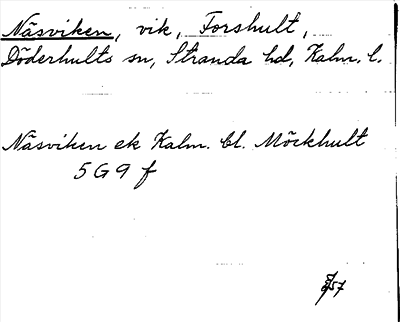 Näsviken, vik, Forshult,
Döderhults sn, Stranda hd, Kalm. l.
Näsviken ek Kalm. bl. Möckhult
5 G 9 f
57